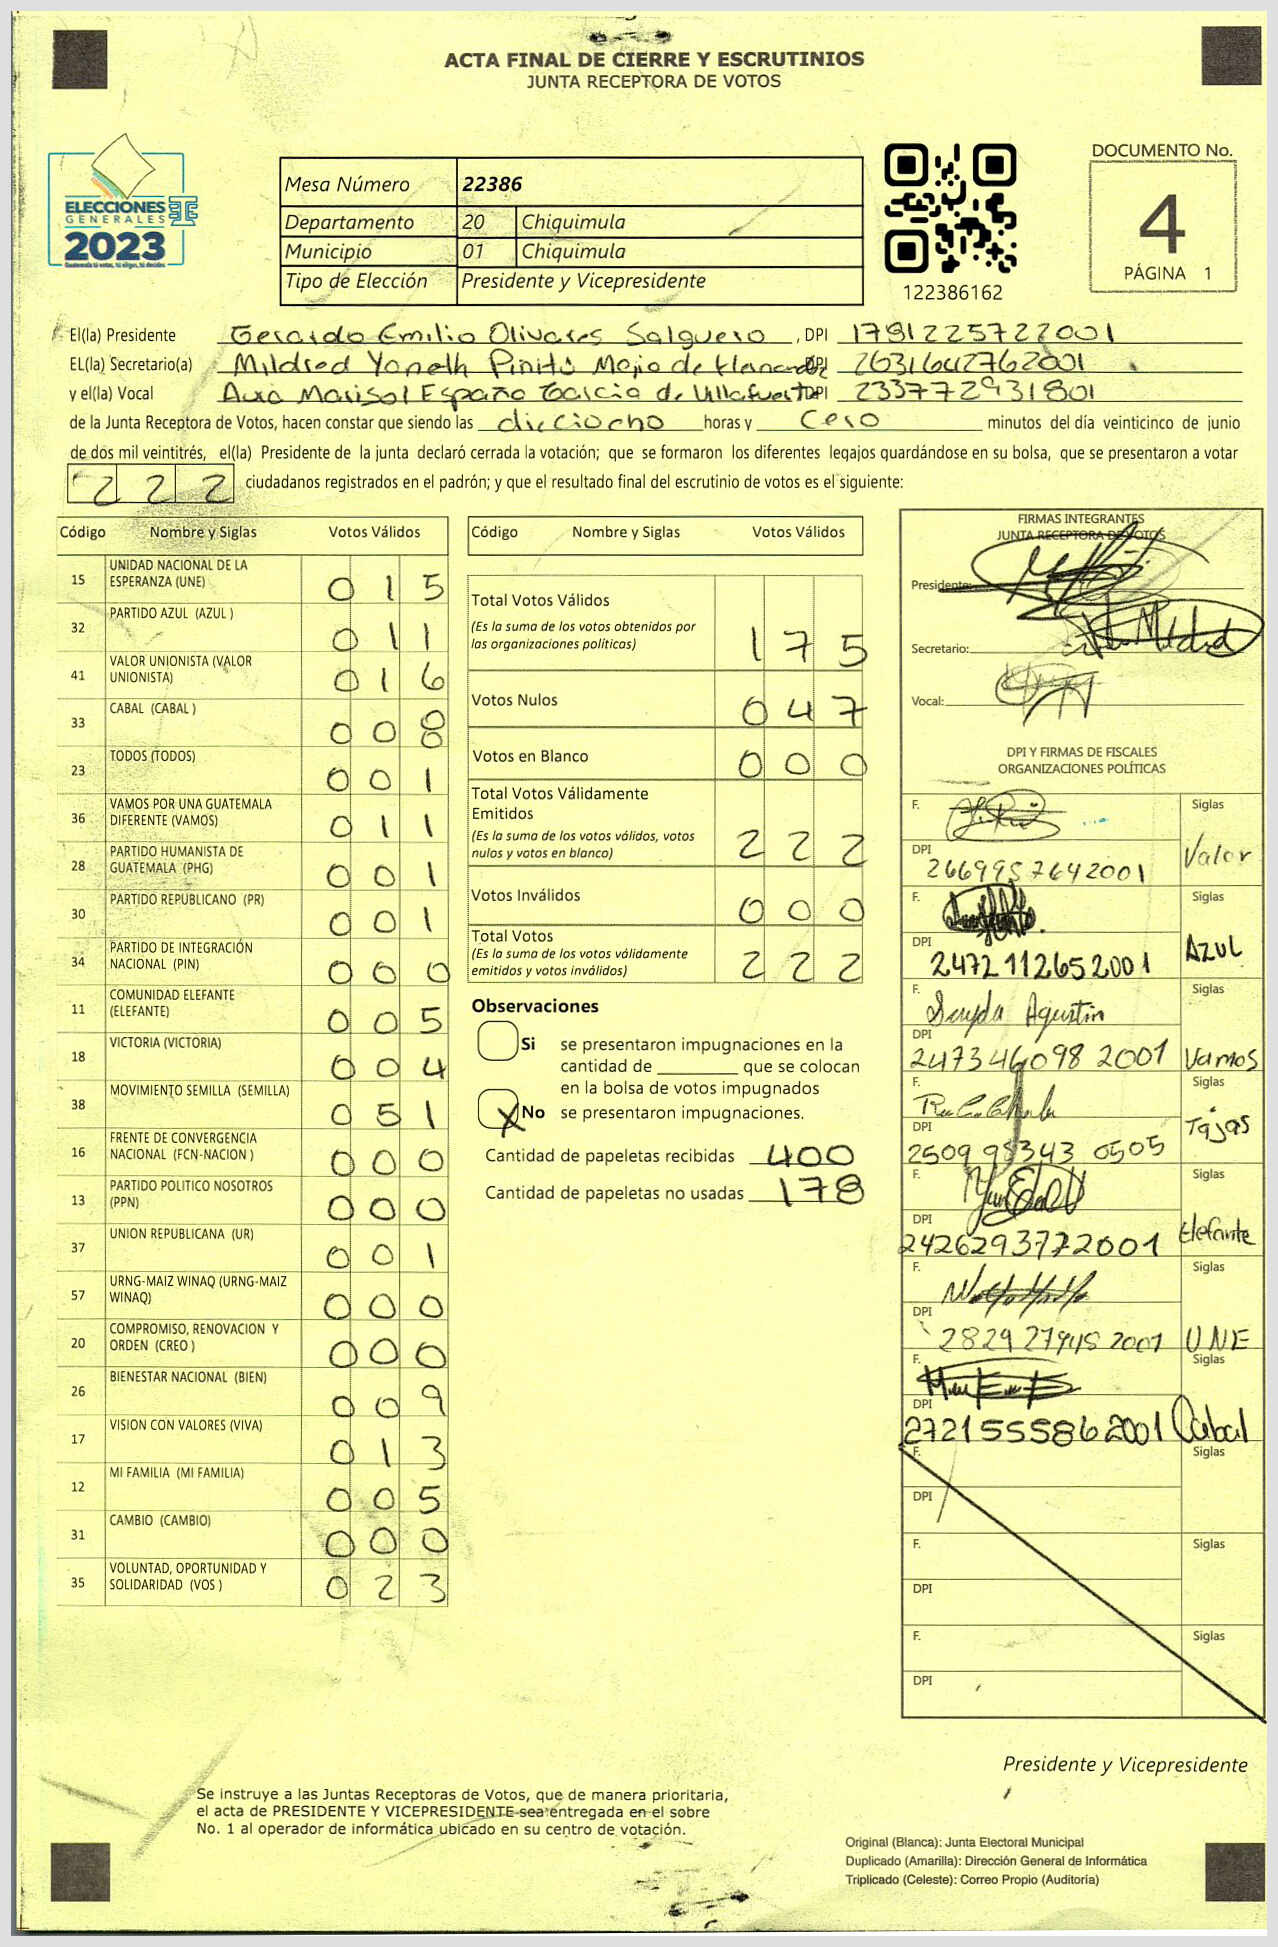 ACTA FINAL DE CIERRE Y ESCRUTINIOS
JUNTA RECEPTORA DE VOTOS
ELECCIONES
GENERALES
2023
Guatemala tú votas, tú eliges, tú decides
Mesa Número 22386
Departamento 20 Chiquimula
Municipio 01 Chiquimula
Tipo de Elección Presidente y Vicepresidente
122386162
DOCUMENTO No.
4
PÁGINA 1
El(la) Presidente Gerardo Emilio Olivares Salguero, DPI 1791225722001
EL(la) Secretario(a) Mildred Yaneth Pinitú Mejia de Hernandez DPI 2631642762001
y el(la) Vocal Aura Marisol España García de Villafuerte DPI 233772931801
de la Junta Receptora de Votos, hacen constar que siendo las dieciocho horas y cero minutos del día veinticinco de junio
de dos mil veintitrés, el(la) Presidente de la junta declaró cerrada la votación; que se formaron los diferentes legajos guardándose en su bolsa, que se presentaron a votar
222 ciudadanos registrados en el padrón; y que el resultado final del escrutinio de votos es el siguiente:
Código Nombre y Siglas Votos Válidos
15 UNIDAD NACIONAL DE LA ESPERANZA (UNE) 015
32 PARTIDO AZUL (AZUL ) 011
41 VALOR UNIONISTA (VALOR UNIONISTA) 016
33 CABAL (CABAL ) 008
23 TODOS (TODOS) 001
36 VAMOS POR UNA GUATEMALA DIFERENTE (VAMOS) 011
28 PARTIDO HUMANISTA DE GUATEMALA (PHG) 001
30 PARTIDO REPUBLICANO (PR) 001
34 PARTIDO DE INTEGRACIÓN NACIONAL (PIN) 000
11 COMUNIDAD ELEFANTE (ELEFANTE) 005
18 VICTORIA (VICTORIA) 004
38 MOVIMIENTO SEMILLA (SEMILLA) 051
16 FRENTE DE CONVERGENCIA NACIONAL (FCN-NACION ) 000
13 PARTIDO POLITICO NOSOTROS (PPN) 000
37 UNION REPUBLICANA (UR) 001
57 URNG-MAIZ WINAQ (URNG-MAIZ WINAQ) 000
20 COMPROMISO, RENOVACION Y ORDEN (CREO ) 000
26 BIENESTAR NACIONAL (BIEN) 009
17 VISION CON VALORES (VIVA) 013
12 MI FAMILIA (MI FAMILIA) 005
31 CAMBIO (CAMBIO) 000
35 VOLUNTAD, OPORTUNIDAD Y SOLIDARIDAD (VOS ) 023
Código Nombre y Siglas Votos Válidos
Total Votos Válidos 175
(Es la suma de los votos obtenidos por
las organizaciones políticas)
Votos Nulos 047
Votos en Blanco 000
Total Votos Válidamente
Emitidos 222
(Es la suma de los votos válidos, votos
nulos y votos en blanco)
Votos Inválidos 000
Total Votos 222
(Es la suma de los votos válidamente
emitidos y votos inválidos)
Observaciones
Si se presentaron impugnaciones en la
cantidad de ________ que se colocan
en la bolsa de votos impugnados
X No se presentaron impugnaciones.
Cantidad de papeletas recibidas 400
Cantidad de papeletas no usadas 178
FIRMAS INTEGRANTES
JUNTA RECEPTORA DE VOTOS
Presidente:
Secretario:
Vocal:
DPI Y FIRMAS DE FISCALES
ORGANIZACIONES POLÍTICAS
F. Siglas
DPI 2669957642001 Valor
F. Siglas
DPI 2472112652001 AZUL
F. Agustin Siglas
DPI 2473460982001 Vamos
F. Siglas
DPI 2509983430505 Todos
F. Siglas
DPI 2426293772001 Elefante
F. Siglas
DPI 2829279452001 UNE
F. Siglas
DPI 2721555862001 Cabal
F. Siglas
DPI
F. Siglas
DPI
F. Siglas
DPI
Presidente y Vicepresidente
Se instruye a las Juntas Receptoras de Votos, que de manera prioritaria,
el acta de PRESIDENTE Y VICEPRESIDENTE sea entregada en el sobre
No. 1 al operador de informática ubicado en su centro de votación.
Original (Blanca): Junta Electoral Municipal
Duplicado (Amarilla): Dirección General de Informática
Triplicado (Celeste): Correo Propio (Auditoría)